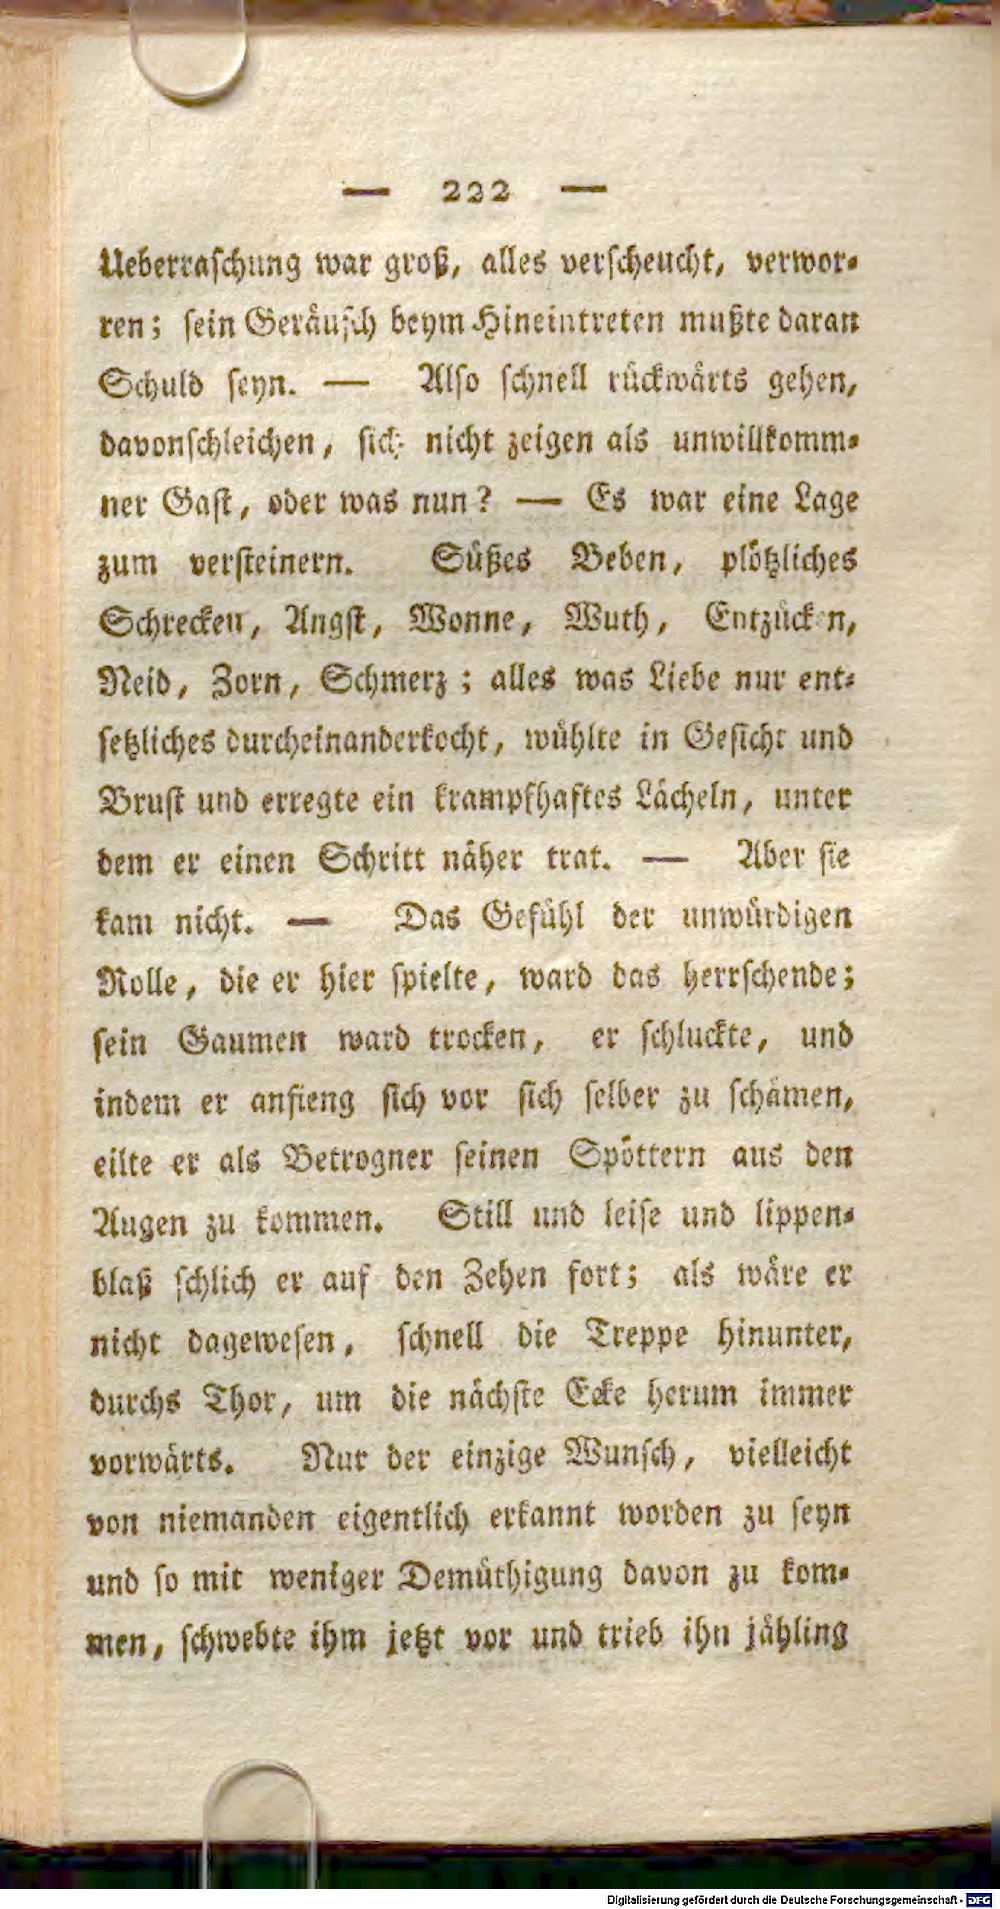 — 222 —
Ueberraſchung war groß, alles verſcheucht, verwor-
ren; ſein Geräuſch beym Hineintreten mußte daran
Schuld ſeyn. — Alſo ſchnell rückwärts gehen,
davonſchleichen, ſich nicht zeigen als unwillkomm-
ner Gaſt, oder was nun? — Es war eine Lage
zum verſteinern. Süßes Beben, plötzliches
Schrecken, Angſt, Wonne, Wuth, Entzücken,
Neid, Zorn, Schmerz; alles was Liebe nur ent-
ſetzliches durcheinanderkocht, wühlte in Geſicht und
Bruſt und erregte ein krampfhaftes Lächeln, unter
dem er einen Schritt näher trat. — Aber ſie
kam nicht. — Das Gefühl der unwürdigen
Rolle, die er hier ſpielte, ward das herrſchende;
ſein Gaumen ward trocken, er ſchluckte, und
indem er anfieng ſich vor ſich ſelber zu ſchämen,
eilte er als Betrogner ſeinen Spöttern aus den
Augen zu kommen. Still und leiſe und lippen-
blaß ſchlich er auf den Zehen fort; als wäre er
nicht dageweſen, ſchnell die Treppe hinunter,
durchs Thor, um die nächſte Ecke herum immer
vorwärts. Nur der einzige Wunſch, vielleicht
von niemanden eigentlich erkannt worden zu ſeyn
und ſo mit weniger Demüthigung davon zu kom-
men, ſchwebte ihm jetzt vor und trieb ihn jähling
Digitalisierung gefördert durch die Deutsche Forschungsgemeinschaft - DFG